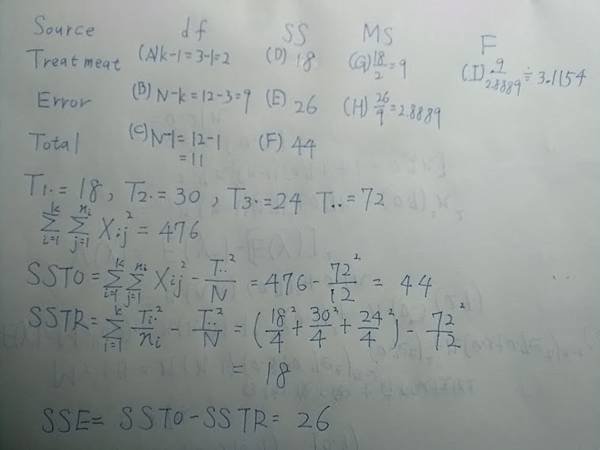 Source df SS MS F
Treatmeat (A) k-1=3-1=2 (D) 18 (G) 18/2 = 9 (I) 9/2.8889 ≒ 3.1154
Error (B) N-k=12-3=9 (E) 26 (H) 26/9 = 2.8889
Total (C) N-1=12-1 (F) 44
=11
T₁.=18, T₂.=30, T₃.=24 T..=72
∑_{i=1}^{k} ∑_{j=1}^{n_i} X_{ij}² = 476
SSTO = ∑_{i=1}^{k} ∑_{j=1}^{n_i} X_{ij}² - T..²/N = 476 - 72²/12 = 44
SSTR = ∑_{i=1}^{k} T_{i.}²/n_i - T..²/N = (18²/4 + 30²/4 + 24²/4) - 72²/12
= 18
SSE = SSTO - SSTR = 26